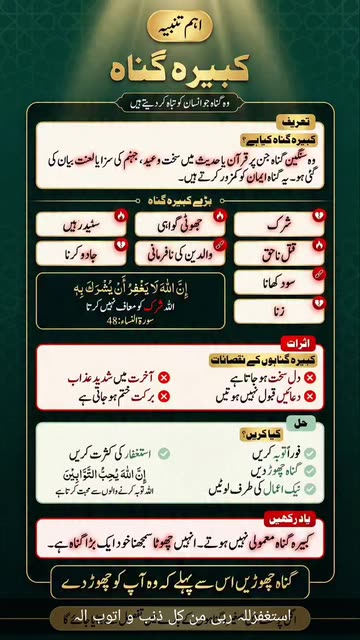 اہم تنبیہ
کبیرہ گناہ
وہ گناہ جو انسان کو تباہ کر دیتے ہیں
تعریف
کبیرہ گناہ کیا ہے؟
وہ سنگین گناہ جن پر قرآن یا حدیث میں سخت وعید، جہنم کی سزا یا لعنت بیان کی
گئی ہو۔ یہ گناہ ایمان کو کمزور کرتے ہیں۔
بڑے کبیرہ گناہ
شرک
جھوٹی گواہی
سٹیدر ہیں
قتل ناحق
والدین کی نافرمانی
جادو کرنا
سود کھانا
زنا
إِنَّ اللهَ لَا يَغْفِرُ أَنْ يُشْرَكَ بِهِ
اللہ شرک کو معاف نہیں کرتا
سورۃ النساء:48
اثرات
کبیرہ گناہوں کے نقصانات
دل سخت ہو جاتا ہے
آخرت میں شدید عذاب
دعائیں قبول نہیں ہوتیں
برکت ختم ہو جاتی ہے
حل
کیا کریں؟
فوراً توبہ کریں
استغفار کی کثرت کریں
گناہ چھوڑ دیں
إِنَّ اللهَ يُحِبُّ التَّوَّابِيْنَ
نیک اعمال کی طرف لوٹیں
اللہ توبہ کرنے والوں سے محبت کرتا ہے
یاد رکھیں
کبیرہ گناہ معمولی نہیں ہوتے۔ انہیں چھوٹا سمجھنا خود ایک بڑا گناہ ہے۔
گناہ چھوڑیں اس سے پہلے کہ وہ آپ کو چھوڑ دے
استغفرللہ ربی من کل ذنب و اتوب الہ